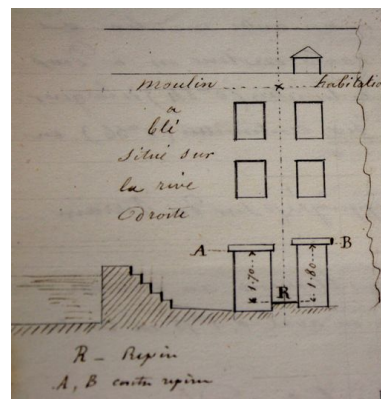 moulin habitatio
à
blé
situé sur
la rive
droite
A B
1.70 1.80
R
R _ Repère
A, B contre repère